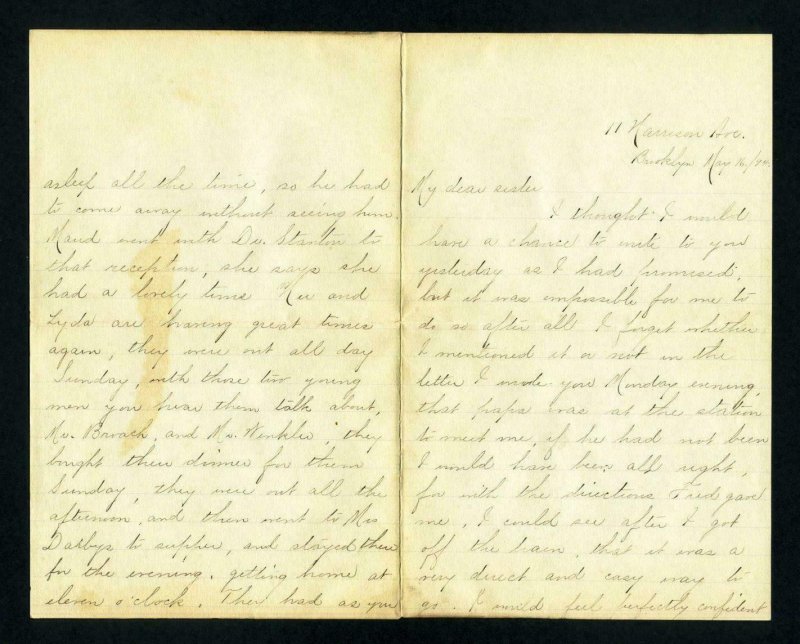 11 Harrison Ave.
Brooklyn May 16/94.
My dear sister
I thought I would
have a chance to write to you
yesterday as I had promised,
but it was impossible for me to
do so after all I forget whether
I mentioned it or not in the
letter I wrote you Monday evening,
that papa was at the station
to meet me, if he had not been
I would have been all right,
for with the directions Fred gave
me, I could see after I got
off the train, that it was a
very direct and easy way to
go. I would feel perfectly confident
asleep all the time, so he had
to come away without seeing him.
Maud went with Dr. Stanton to
that reception, she says she
had a lovely time and
Lyda are having great times
again, they were out all day
Sunday, with those two young
men you hear them talk about,
Mr. and Mr. Winkler; they
bought their dinner for them
Sunday, they were out all the
afternoon, and then went to Mrs
Darbys to supper, and stayed there
for the evening, getting home at
eleven o'clock. They had as you